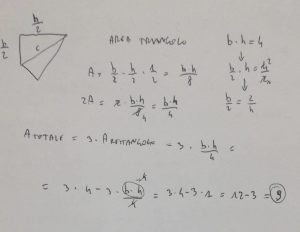 h/2
b/2
c
AREA TRIANGOLO
A = b/2 · h/2 · 1/2 = b·h/8
2A = 2 · b·h/8 4 = b·h/4
b·h = 4
↓
b/2 · h = 4 2/2h
↓
b/2 = 2/h
A TOTALE = 3 · A RETTANGOLO - 3 · b·h/4 =
= 3·4 - 3 · b·h 4/4 = 3·4 - 3·1 = 12 - 3 = 9